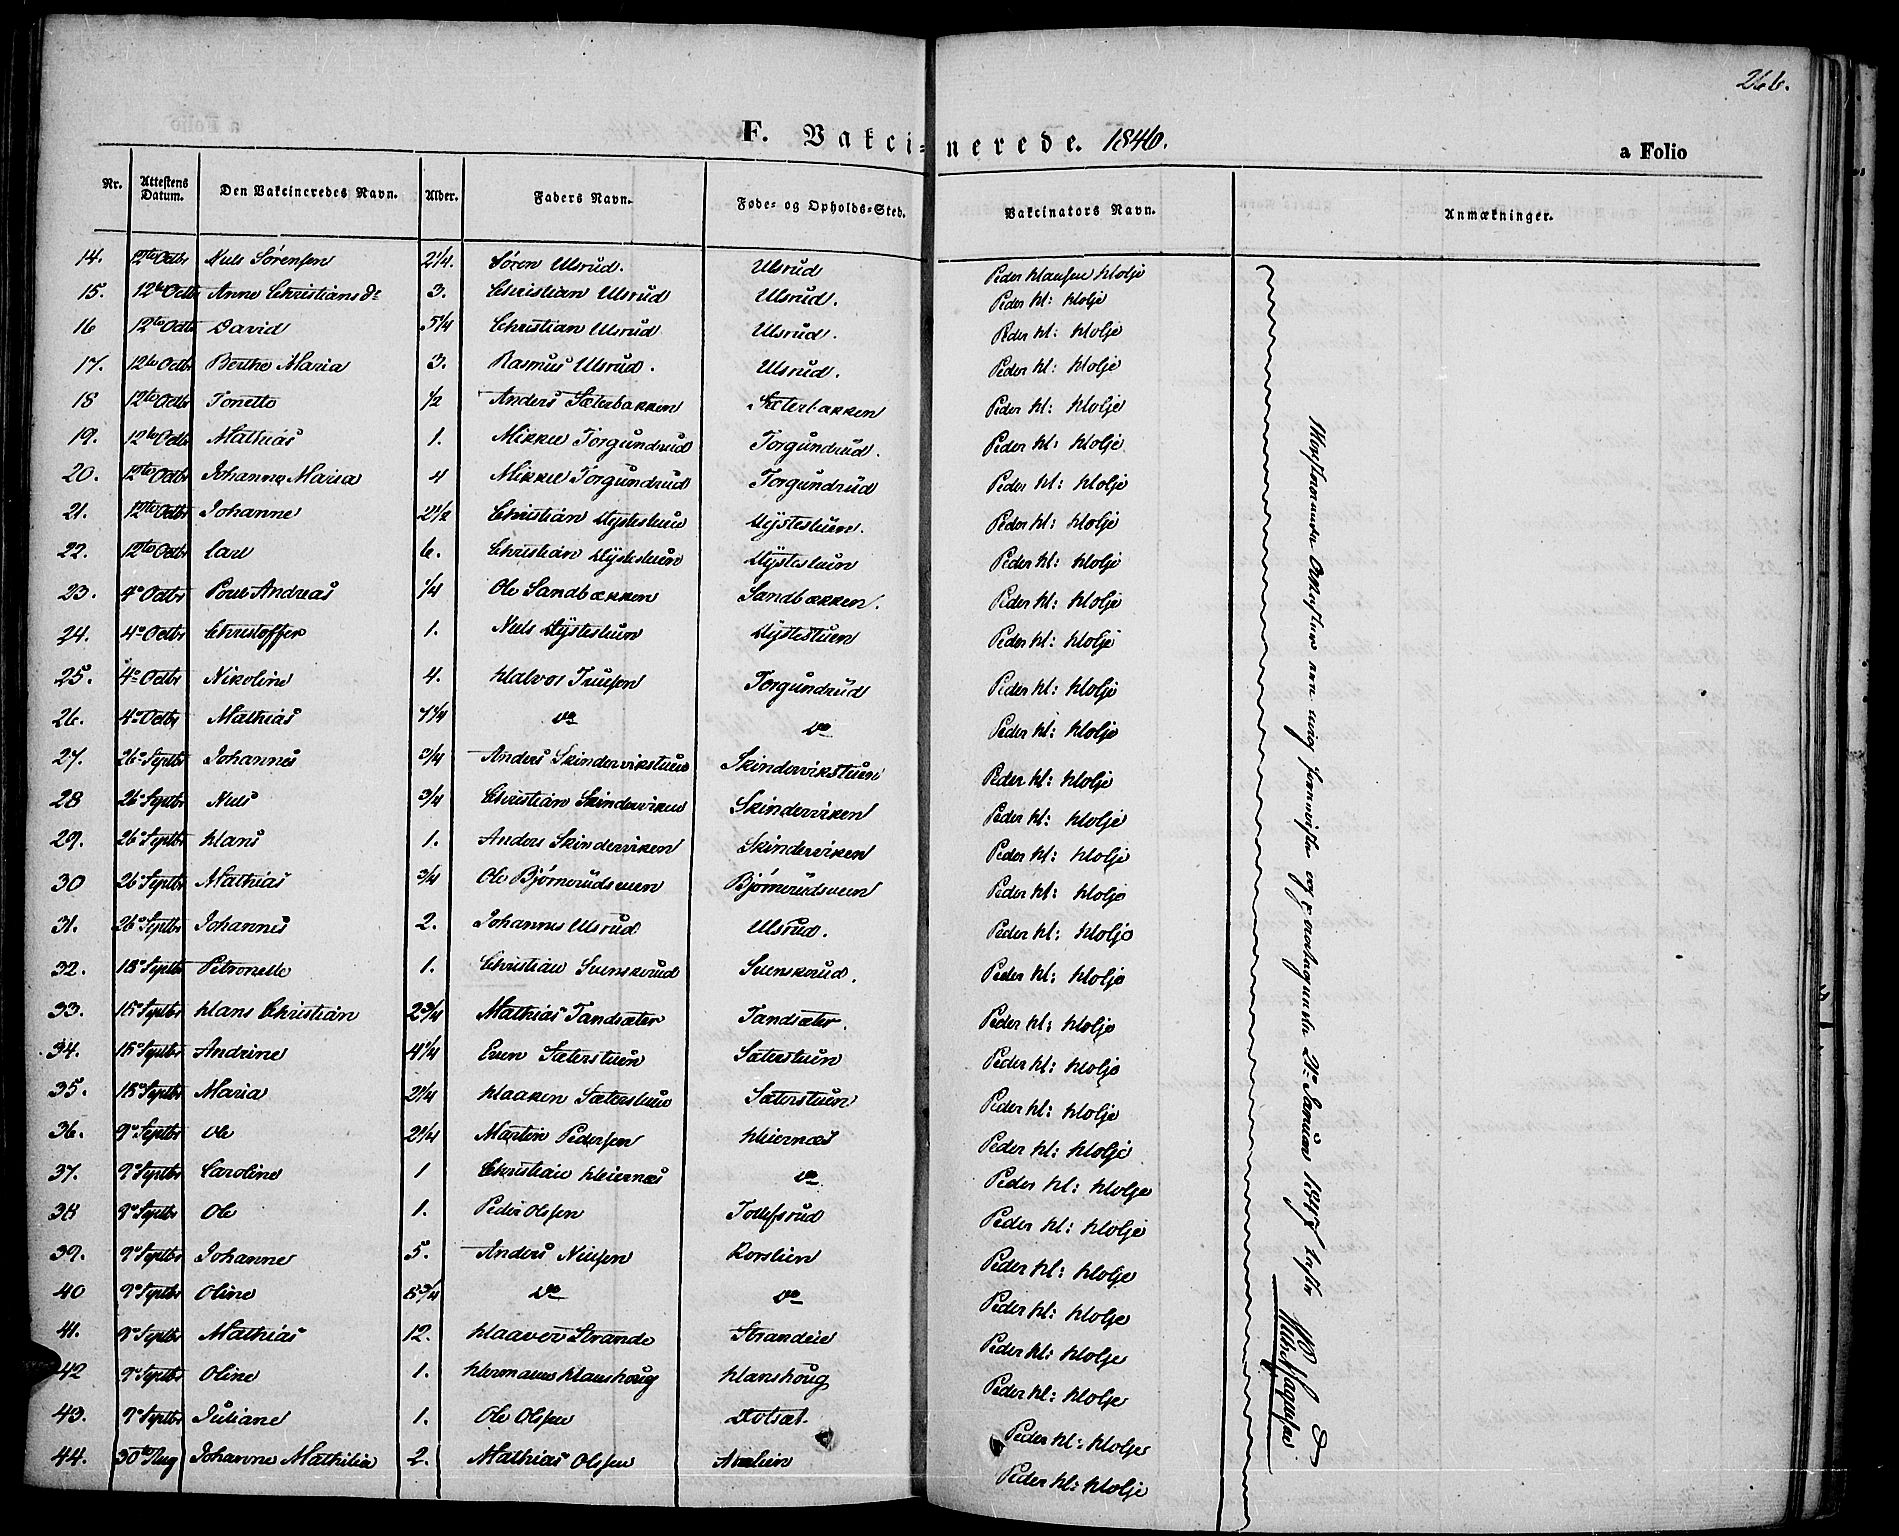 266.
F. Vakcinerede. 1846.
a Folio
Nr. Attestens Datum. Den Vakcineredes Navn. Alder. Faders Navn. Føde- og Opholds-Sted. Vakcinators Navn. Anmærkninger.
14. 12te Octbr Niels Sørensen 2 1/4. Søren Ulsrud. Ulsrud Peder Klausen Klolje
15. 12te Octbr Anne Christians Dr 3. Christian Ulsrud Ulsrud. Peder Kl: Klolje
16 12te Octbr David 5 1/4 Christian Ulsrud Ulsrud. Peder Kl: Klolje
17. 12te Octbr Berthe Maria 3. Rasmus Ulsrud. Ulsrud. Peder Kl: Klolje
18 12te Octbr Tonette 1/2 Anders Sæterbakken Sæterbakken Peder Kl: Klolje
19. 12te Octbr Mathias 1. Mikkel Torgundrud Torgundrud. Peder Kl: Klolje
20. 12te Octbr Johanne Maria 4 Mikkel Torgundrud Torgundrud Peder Kl: Klolje
21. 12te Octbr Johanne 2 1/2 Christian Dystestuen Dystestuen. Peder Kl: Klolje
22. 12te Octbr Carl 6. Christian Dystestuen Dystestuen Peder Kl: Klolje
23. 4e Octbr Poul Andreas 1/4 Ole Sandbækken Sandbækken. Peder Kl: Klolje
24. 4e Octbr Christoffer 1. Niels Dystestuen Dystestuen Peder Kl: Klolje
25. 4e Octbr Nikoline 4. Halvor Iversen Torgundrud Peder Kl: Klolje
26. 4e Octbr Mathias 1 1/4 do do Peder Kl: Klolje
27. 26e Septbr Johannes 3/4 Anders Skindervikstuen Skindervikstuen Peder Kl: Klolje
28 26e Septbr Niels 3/4 Christian Skinderviken Skinderviken Peder Kl: Klolje
29. 26e Septbr Hans 1. Anders Skinderviken Skinderviken Peder Kl: Klolje
30 26e Septbr Mathias 3/4 Ole Bjørnerudsveen Bjørnerudsveen Peder Kl: Klolje
31. 26e Septbr Johannes 2. Johannes Ulsrud Ulsrud. Peder Kl: Klolje
32. 18e Septbr Petronelle 1. Christian Svenskerud Svenskerud. Peder Kl: Klolje
33. 18e Septbr Hans Christian 2 3/4 Mathias Tandsæter Tandsæter. Peder Kl: Klolje
34. 18e Septbr Andrine 4 1/4 Even Sæterstuen Sæterstuen Peder Kl: Klolje
35. 18e Septbr Maria 2 1/4 Haaken Sæterstuen Sæterstuen Peder Kl: Klolje
36. 9e Septbr Ole 2 1/4 Martin Pedersen Heiernæs Peder Kl: Klolje
37. 9e Septbr Caroline 1 Christian Heiernæs do Peder Kl: Klolje
38 9e Septbr Ole 1. Peder Olsen Tollefsrud Peder Kl: Klolje
39. 9e Septbr Johanne 5. Anders Nielsen Korslien Peder Kl: Klolje
40 9e Septbr Oline 8 3/4 do do Peder Kl: Klolje
41. 9e Septbr Mathias 12. Haaver Strande Strandeie Peder Kl: Klolje
42 9e Septbr Oline 1. Hermann Hanshoug Hanshoug Peder Kl: Klolje
43. 9e Septbr Juliane 1. Ole Olsen Peder Kl: Klolje
44. 30te Aug Johanne Mathilia 2. Mathias Olsen Peder Kl: Klolje
21e Januar 1847